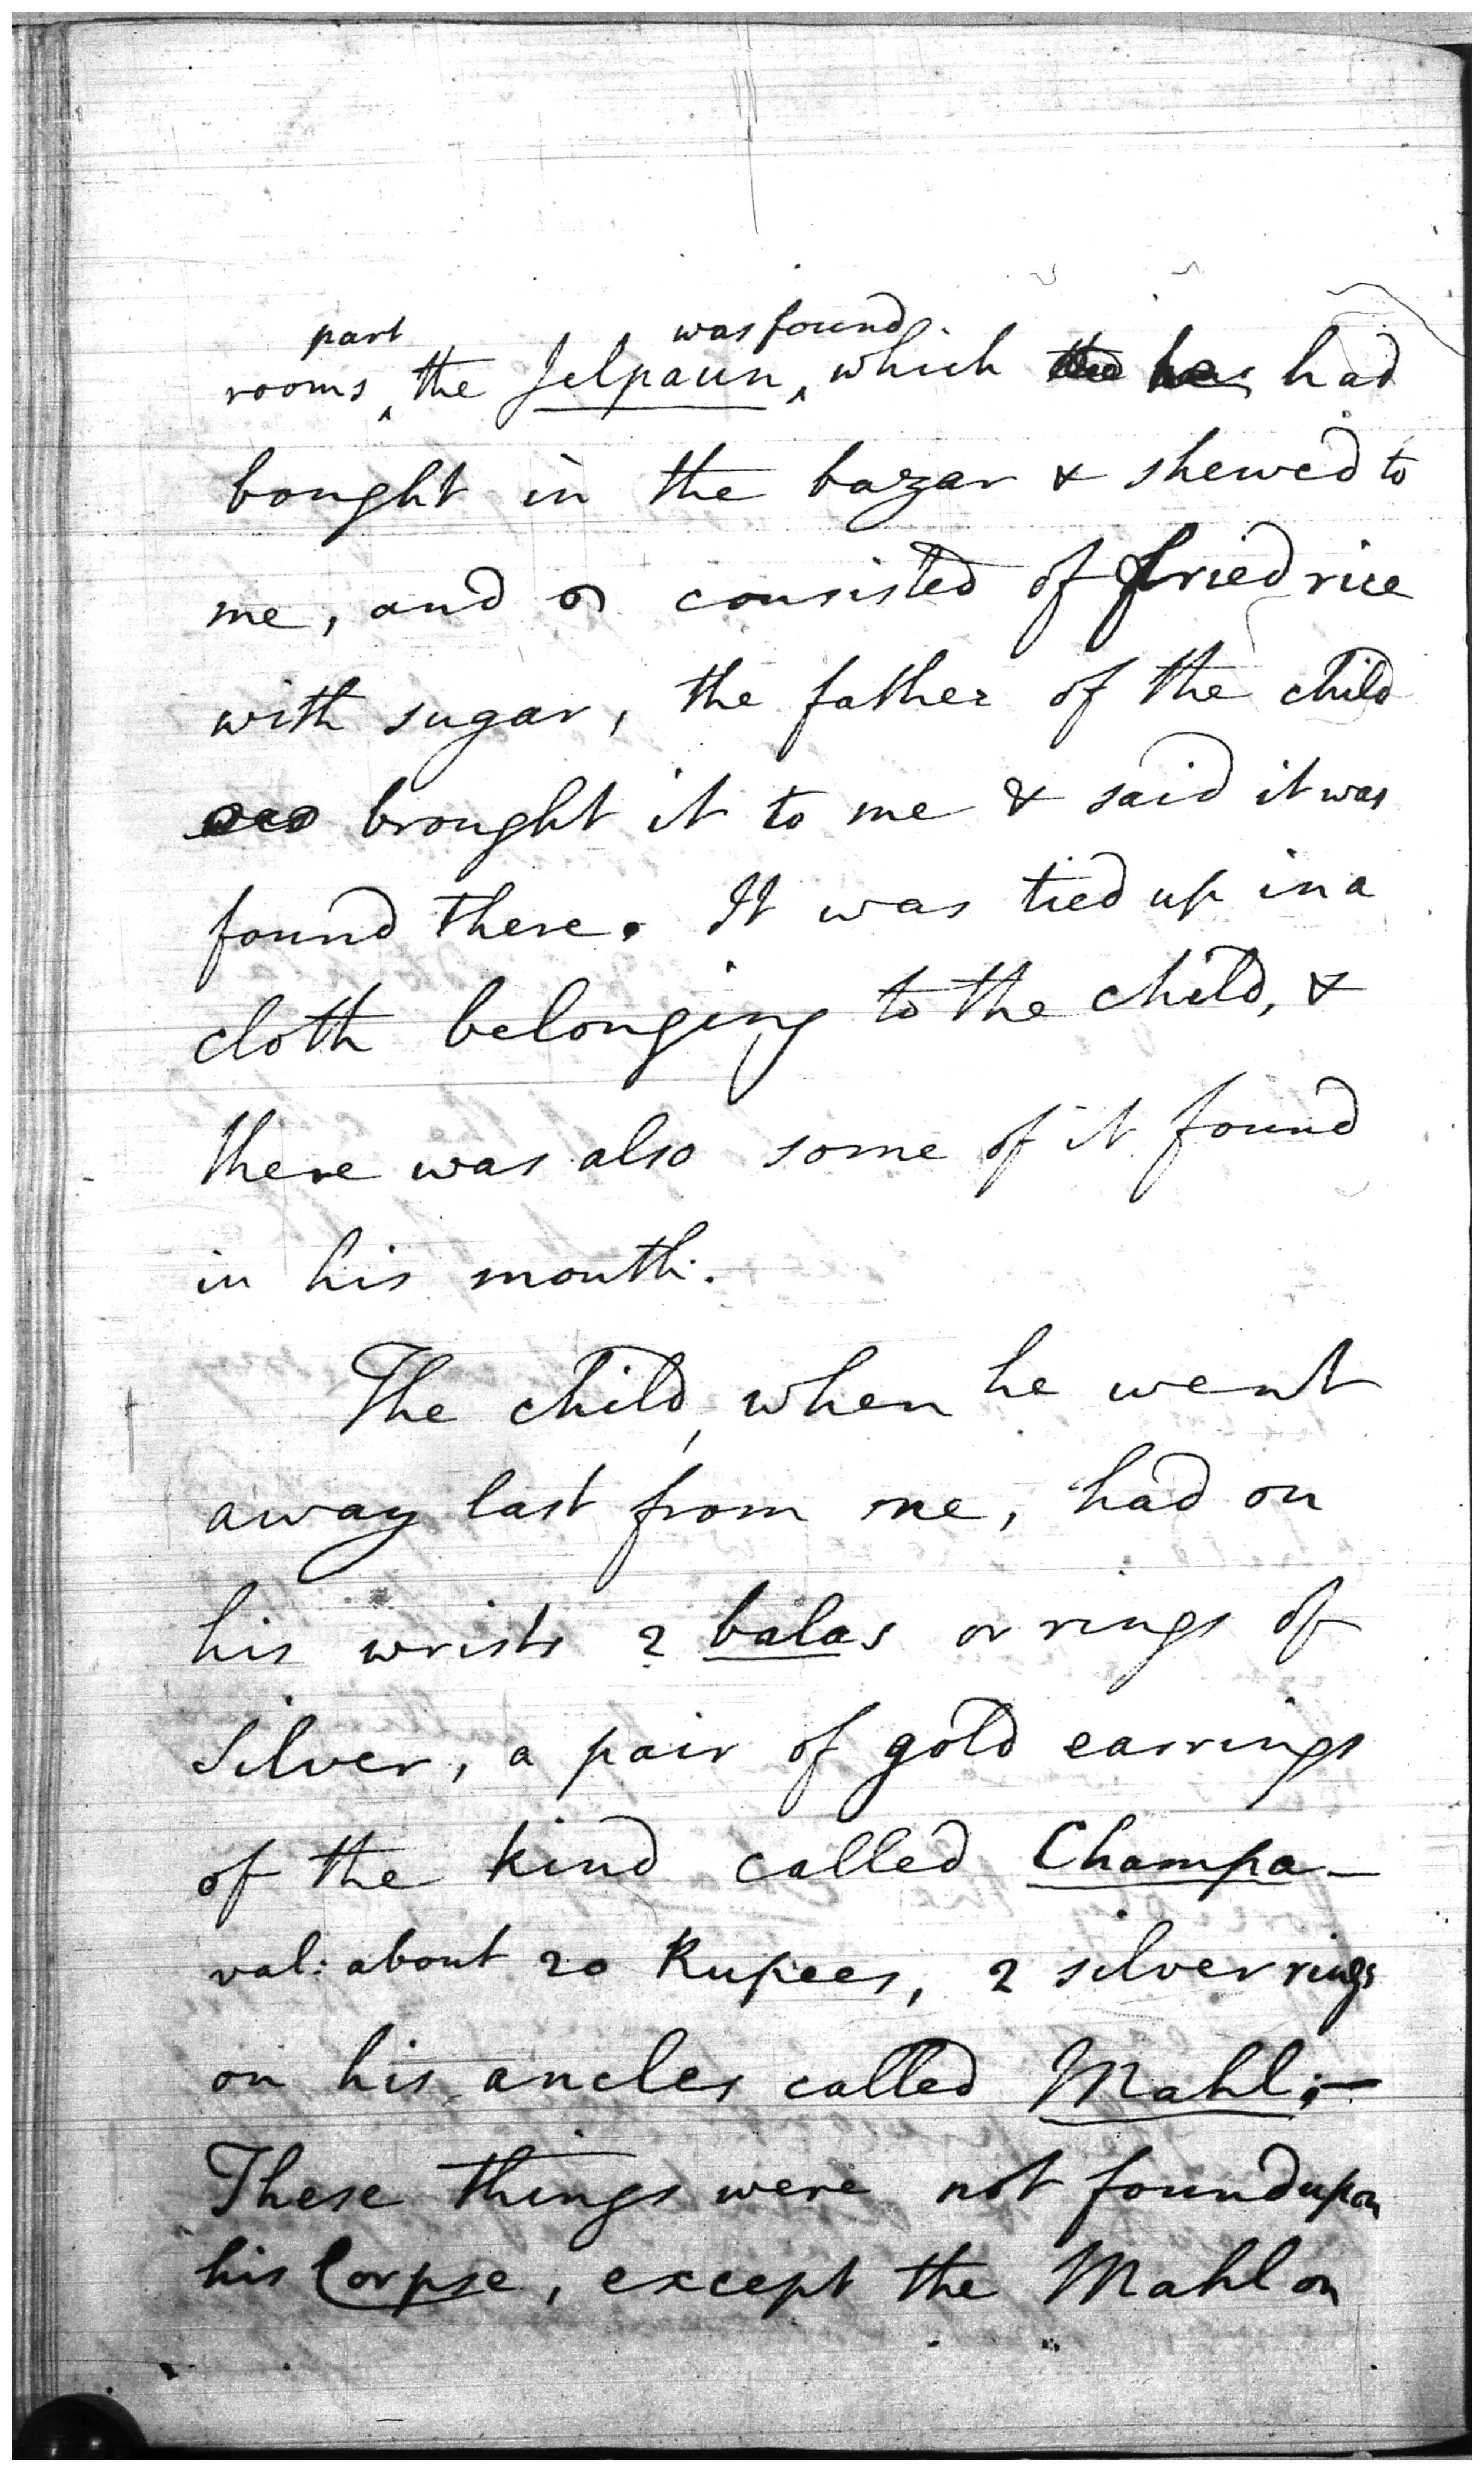 part was found
rooms, the Jelpaun, which had
bought in the bazar & shewed to
me, and consisted of fried rice
with sugar, the father of the child
brought it to me & said it was
found there. It was tied up in a
cloth belonging to the child, &
there was also some of it found
in his mouth.
The child, when he went
away last from me, had on
his wrists 2 balas or rings of
silver, a pair of gold earrings
of the kind called Champa —
val: about 20 Rupees, 2 silver rings
on his ancles called Mahl; —
These things were not found upon
his Corpse, except the Mahl on